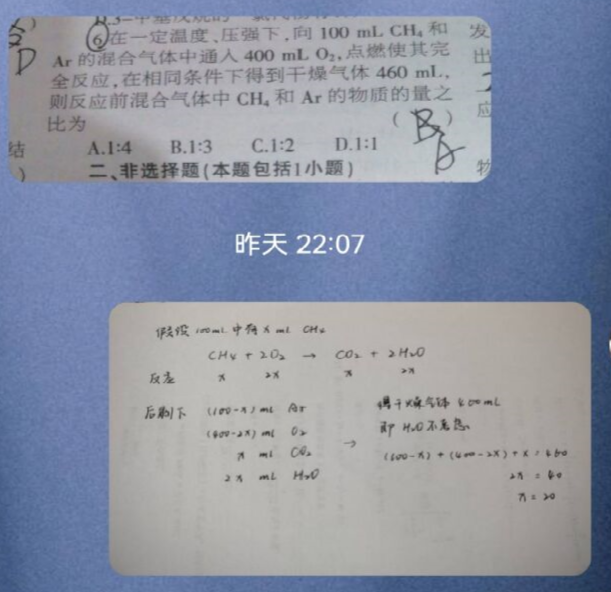 ⑥在一定温度、压强下,向 100 mL CH₄ 和
Ar 的混合气体中通入 400 mL O₂,点燃使其完
全反应,在相同条件下得到干燥气体 460 mL,
则反应前混合气体中 CH₄ 和 Ar 的物质的量之
比为 ( B )
A
A.1∶4 B.1∶3 C.1∶2 D.1∶1
二、非选择题(本题包括1小题)
D
结
发
出
应
物
昨天 22:07
假设 100mL 中有 x mL CH₄
CH₄ + 2O₂ → CO₂ + 2H₂O
反应 x 2x x 2x
后剩下 (100-x) mL Ar
(400-2x) mL O₂
x mL CO₂
2x mL H₂O
→
得干燥气体 460mL
即 H₂O 不考虑
(100-x) + (400-2x) + x = 460
2x = 40
x = 20